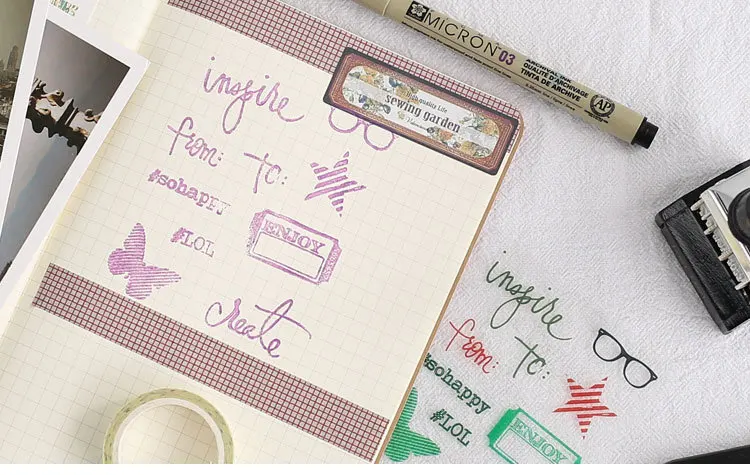 MICRON 03
ARCHIVAL INK
QUALITÉ D'ARCHIVAGE
TINTA DE ARCHIVE
AP
quality Life
sewing garden
inspire
from:
to:
#sohappy
ENJOY
#LOL
create
inspire
from:
to:
#sohappy
#LOL
ENJOY